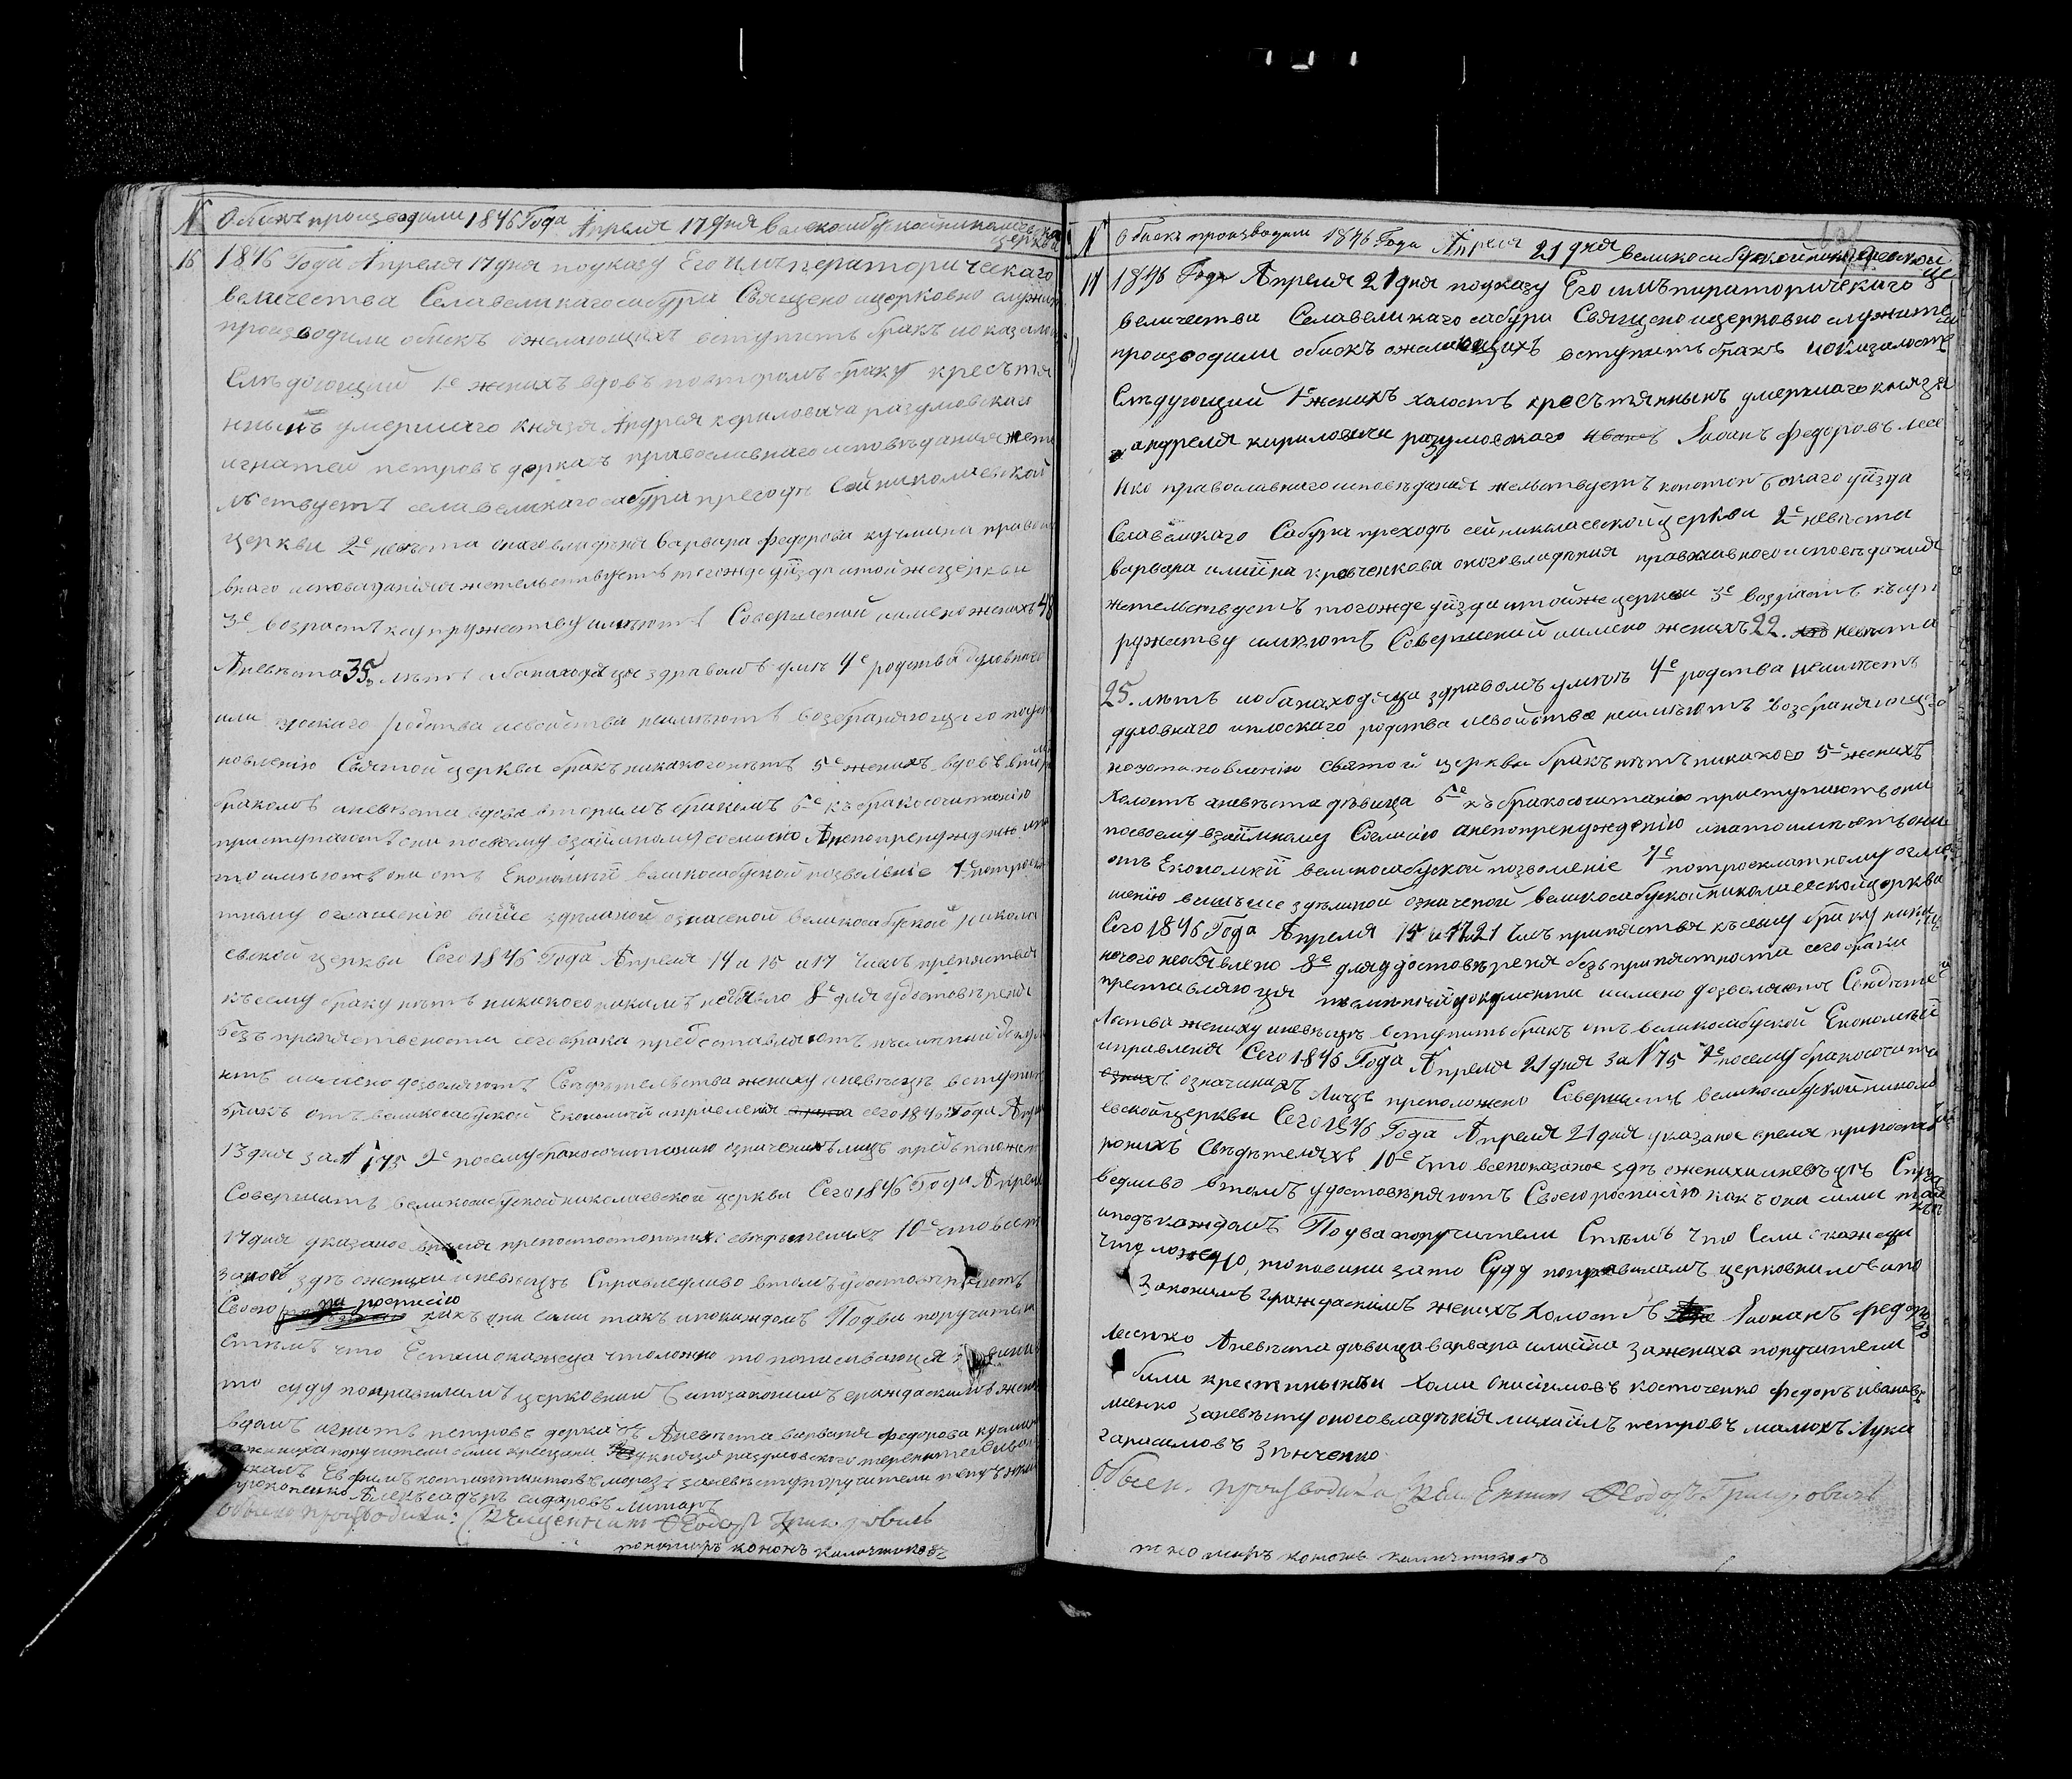 N Обискъ производили 1846 Года Апреля 17 дня великосабурской николаевской
церкви
16 1846 Года Апреля 17 дня поуказу Его имъператорическаго
величества Селавеликагосабура Священо ицерковно служит
производили обискъ ожелающихъ вступить бракъ иоказалос
Слѣдующий 1е женихъ вдовъ повторомъ браку кресътя
нынъ умершаго князя Андрея кериловича разумовскаго
игнатей петровъ деркачъ православнагоисповѣдания жете
льствуетъ села великагосабура преходъ Сей николаевской
церкви 2е невѣста оноговладѣня варвара федорова кузмина правосла
внаго исповѣданія жетельствуетъ тогожде уѣзда итойжецеркви
3е возрастъ ксупружеству имѣютъ Совершений имено женихъ 48
Аневѣста 35 лѣтъ иобанаходяцся здравомъ умѣ 4е родства духовнаго
или плоскаго родства исвойства неимѣютъ возбраняющего постан
новлению Святой церкви бракъ никакогонѣтъ 5е женихъ вдовъ вторы
бракомъ аневѣста вдова вторимъ бракомъ 6е къбракосочитанию
приступаютъ они посвоему взаїмному согласию Анепопренуждению ина
то имѣютъ они отъ Економѣй великосабуской позволение 7е потроек
тному оглашению више зделаной означеной великосабуской николa
евской церкви Сего 1846 Года Апреля 14 и 15 и 17 Числъ препяствия
ксему браку нѣтъ никакого никимъ необявлено 8е для удостовѣреня
безъ препятствености сегобрака представляютъ писмений докуме
нтъ имено дозволяютъ Свидѣтельства жениху иневѣсцѣ вступить
бракъ отъ великосабуской Економѣй иправления сего 1846 Года Апре
13 дня за N 175 9е посемубракосочитанию означенихъ лицъ предъположен
Совершить великосабускойниколаевской церкви Сего 1846 Года Апреля
17 дня указаное время препостостороннихъ свѣдѣтеляхъ 10е что всеп
заной здѣ ожениха иневѣсцѣ Справедливо втомъ удостовѣряютъ
Своею росписию какъ они сами такъ ипокаждомъ Подви поручители
Стѣмъ что Естлиокажеца чтоложно топописивающия повини
то суду поправиламъ церковнимъ ипозаконимъ граждаскимъ жених
вдовъ игнатъ петровъ деркачъ Аневѣста варвара федорова кузмин
зажениха поручители били крестяни князя разумовского терентей
Евфимъ костянтиновъ морозъ заневѣсту поручители петръ
прокопенко Алексадъръ сидоровъ литаръ
Обыскъ производили: Священникъ Ѳеодоръ Григоровичъ
пономаръ кононъ калачниковъ
N Обискъ производили 1846 Года Апреля 21 дня великосабускойниколаевской
це
17 1846 Года Апреля 21 дня поуказу Его имъператорическаго
величества Селавеликаго сабура Священо ицерковно служители
производили обискъ ожелающихъ вступить бракъ иоказалосъ
Слѣдующий 1е женихъ холостъ кресътянынъ умершаго князя
андреля кириловича разумовскаго Иоанъ федоровъ лесе
нко православнагоисповѣданія жельствуетъ конотопъскаго уїзда
Селавеликаго Сабура преходъ сей николаевскойцеркви 2е невѣста
варвара илиїна кравченкова оноговладѣния православногоисповѣданія
жетельствуетъ тогожде уїзда итойжецеркви 3е возрастъ късуп
ружеству имѣютъ Совершений имено женихъ 22. невѣста
25. лѣтъ иобанаходяца здравомъ умѣ 4е родства неимѣетъ
духовнаго иплоскаго родства исвойства неимѣютъ возбраняющаго
нопостановлению святой церкви бракъ нѣтъ никакого 5е женихъ
холостъ аневѣста дѣвица 6е къбракосочитанию приступаютъ они
посвоему взаїмному Согласию анепопренуждению инатоимѣютъ они
отъ Економѣй великосабуской позволение 7е потроеклатному оглаш
шению вишъше зделаной означеной великосабускойниколаевскойцеркви
Сего 1846 Года Апреля 15 и 17 21 Числъ препяствия късему браку ника
кого необявлено 8е для удостовѣреня безъ припятности сего брака
преставляюця писмений документи имено дозволяютъ Свидѣте
льства жениху иневѣсцѣ вступить бракъ отъ великосабуской Економѣй
иправления Сего 1846 Года Апреля 21 дня за N 75 9е посему бракосочита
означинихъ лицъ преположено Совершитъ великосабускойникола
евскойцеркви Сего 1846 Года Апреля 21 дня указаное время припостаїя
ронихъ Свѣдѣтеляхъ 10е Что всепоказаное здѣ ожениха иневѣсцѣ Спра
ведливо втомъ удостовѣряютъ Своею росписию какъ они сами такъ
иподъкаждомъ Подва поручители Стѣмъ что Если окажеця
Что ложно, топовини зато Суду поправиламъ церковнимъ ипо
Законимъ граждаскимъ женихъ Холостъ Иоанъ федоро
лесенко Аневѣста дѣвица варвара илиїна зажениха поручители
били крестяныни хома онисимовъ косточенко федоръ ивановъ
менко заневѣсту оноговладѣнія михаїлъ петровъ малюхъ лука
гарасимовъ зѣнченко
Обыск. производили Священникъ Ѳеодоръ Григоровичъ
пономаръ кононъ калачниковъ